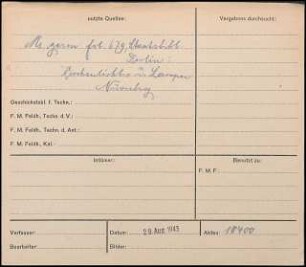 nutzte Quellen:
Vergebens durchsucht:
Ms. germ. fol. 679, Staatsbibl.
Berlin:
Nürnberg
Geschichtsbl. f. Techn.:
F. M. Feldh., Techn. d. V.:
F. M. Feldh., Techn. d. Ant.:
F. M. Feldh., Kal.:
Irrtümer:
Benutzt zu:
F. M. F.:
Verfasser:
Datum: 20. Aug. 1943
Akten: 18400
Bearbeiter:
Bilder: